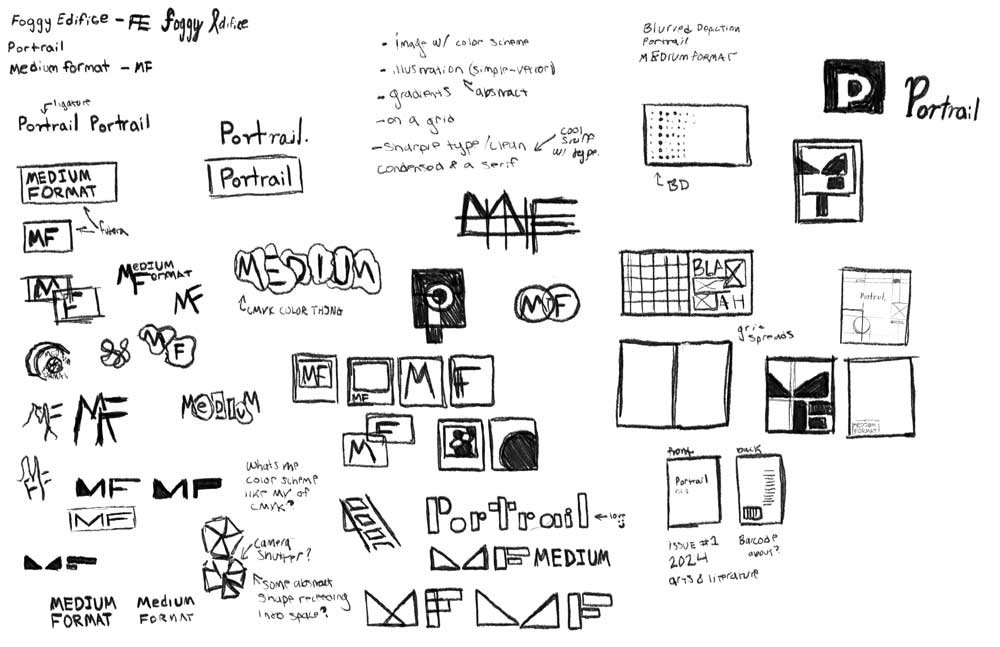 Foggy Edifice - FE foggy Edifice
Portrail
Medium format - MF
ligature
Portrail Portrail
Portrail.
Portrail
MEDIUM
FORMAT
futura
MF
M
F
MEDIUM
FORMAT
MF
MEDIUM
CMYK COLOR THING
M F
MF
MF
MeDIUM
MF
MF MF
MF
MF
MEDIUM
FORMAT
Medium
FORMAT
Whats the
color scheme
like my of
CMYK?
camera
shutter?
Some abstract
shape receding
into space?
- image w/ color scheme
- illustration (simple-vector)
abstract
- gradients
- on a grid
- sharpie type/clean
condensed & a serif
cool
w/ type.
MF
P
MF
MF
MF
M
F
F
M
Portrail
love
MF MEDIUM
MF MF
Blurred Depiction
Portrail
MEDIUM FORMAT
BD
P Portrail
BLA
AH
grid
spreads
Portrail.
MF
MEDIUM
FORMAT
front
Portrail
back
ISSUE #1
2024
arts & literature
Barcode
about?